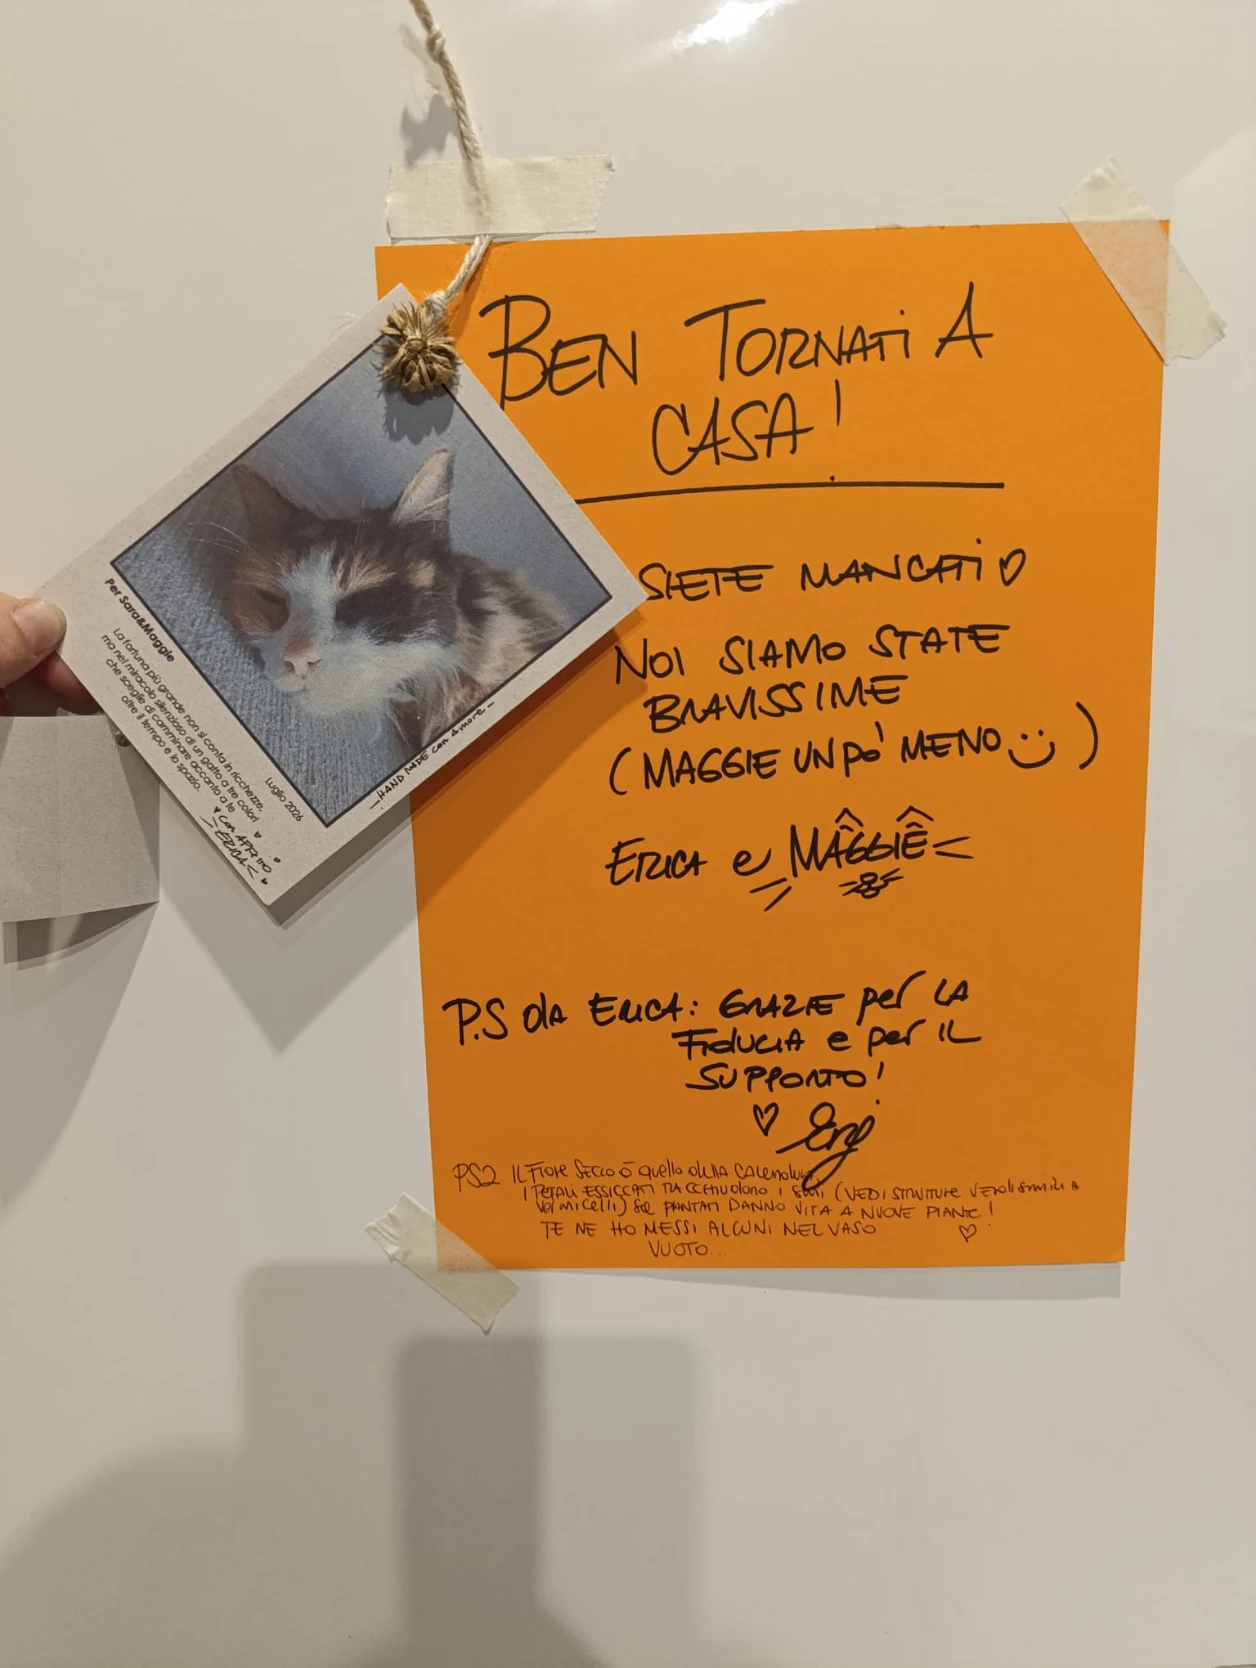 BEN TORNATI A
CASA!
SIETE MANCATI
NOI SIAMO STATE
BRAVISSIME
(MAGGIE UN PO' MENO :))
ERICA e MAGGIE
P.S da ERICA: GRAZIE per LA
FIDUCIA e per IL
SUPPORTO!
PS2 IL FIORE SECCO È quello della CALENDULA
I PETALI ESSICCATI RACCHIUDONO I SEMI (VEDI STRUTTURE VERDI SIMILI A
VERMICELLI) SE PIANTATI DANNO VITA A NUOVE PIANTE!
TE NE HO MESSI ALCUNI NEL VASO
VUOTO...
Per Sara&Maggie
La fortuna più grande non si conta in ricchezze,
ma nel miracolo silenzioso di un gatto a tre colori
che sceglie di camminare accanto a te
oltre il tempo e lo spazio.
Luglio 2026
CON AFFETTO
ERICA
HANDMADE con Amore